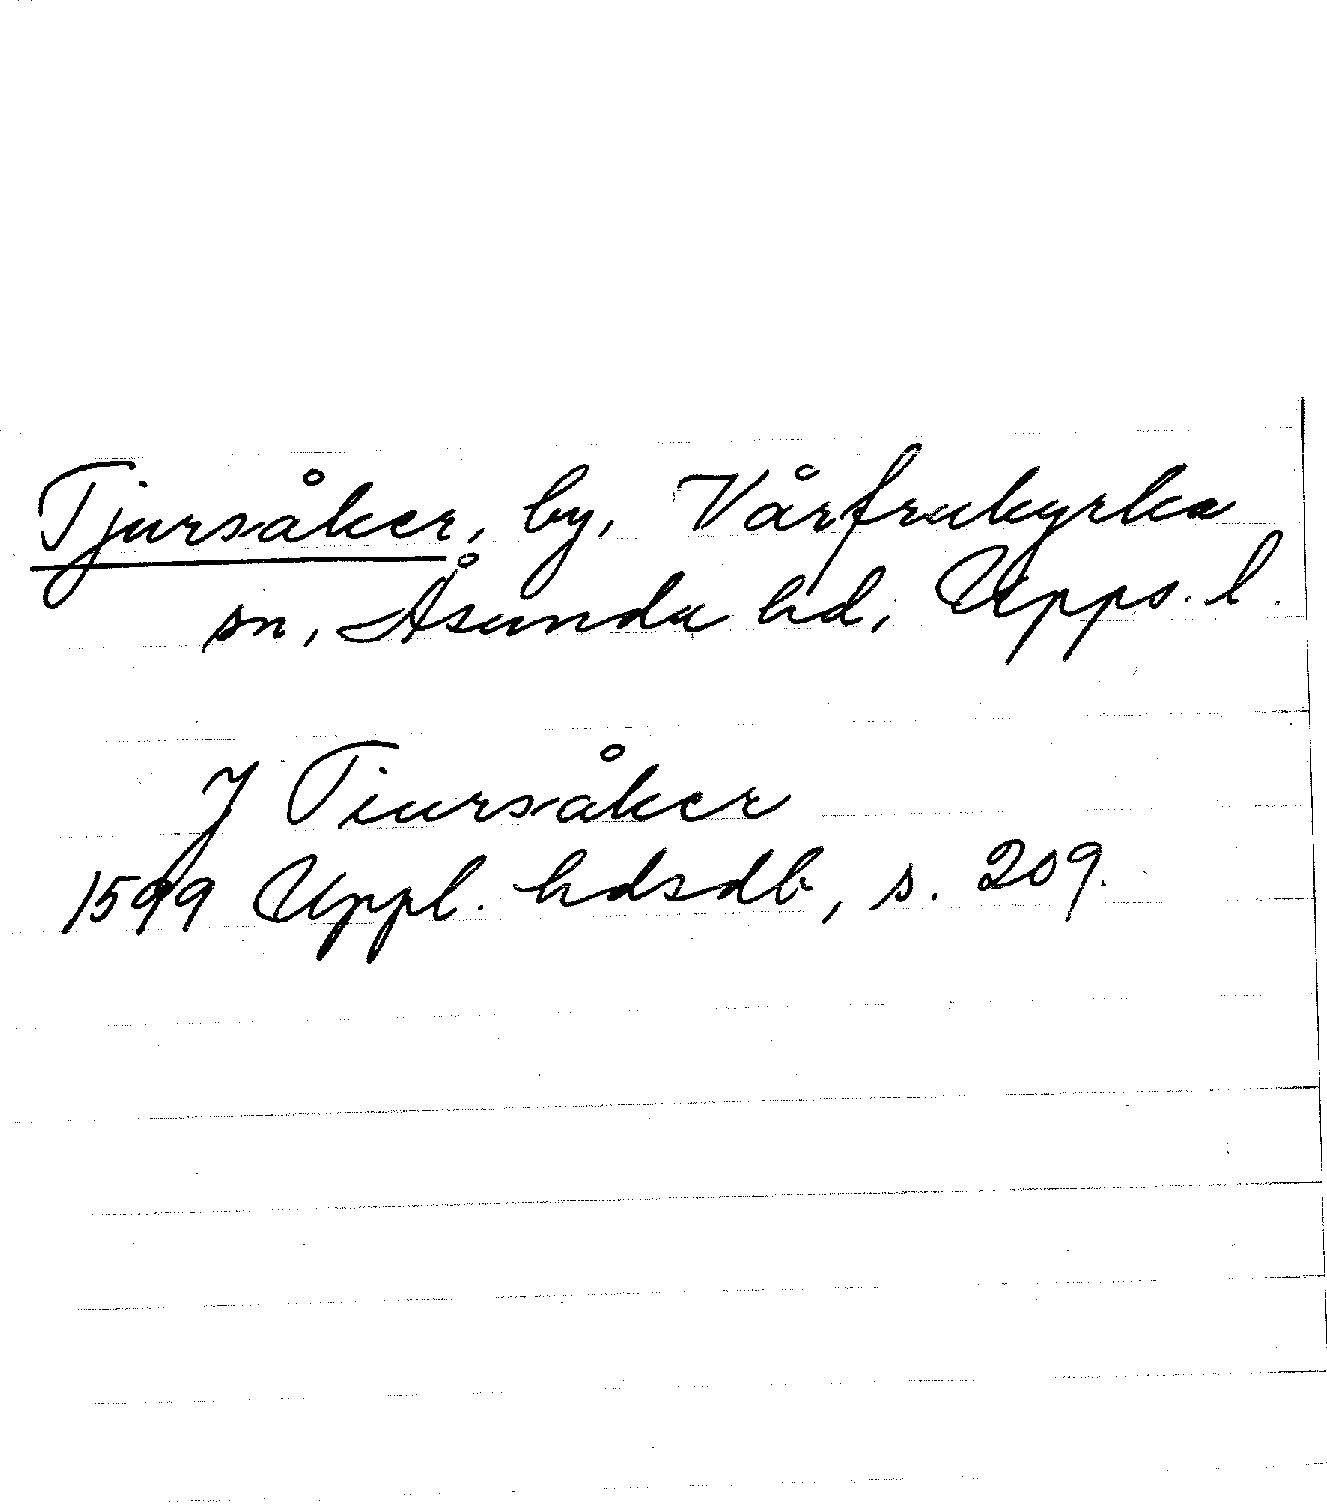 Tjursåker, by, Vårfrukyrka
sn, Åsunda hd, Upps. l.
J Tiursåker
1599 Uppl. hdsdb, s. 209.